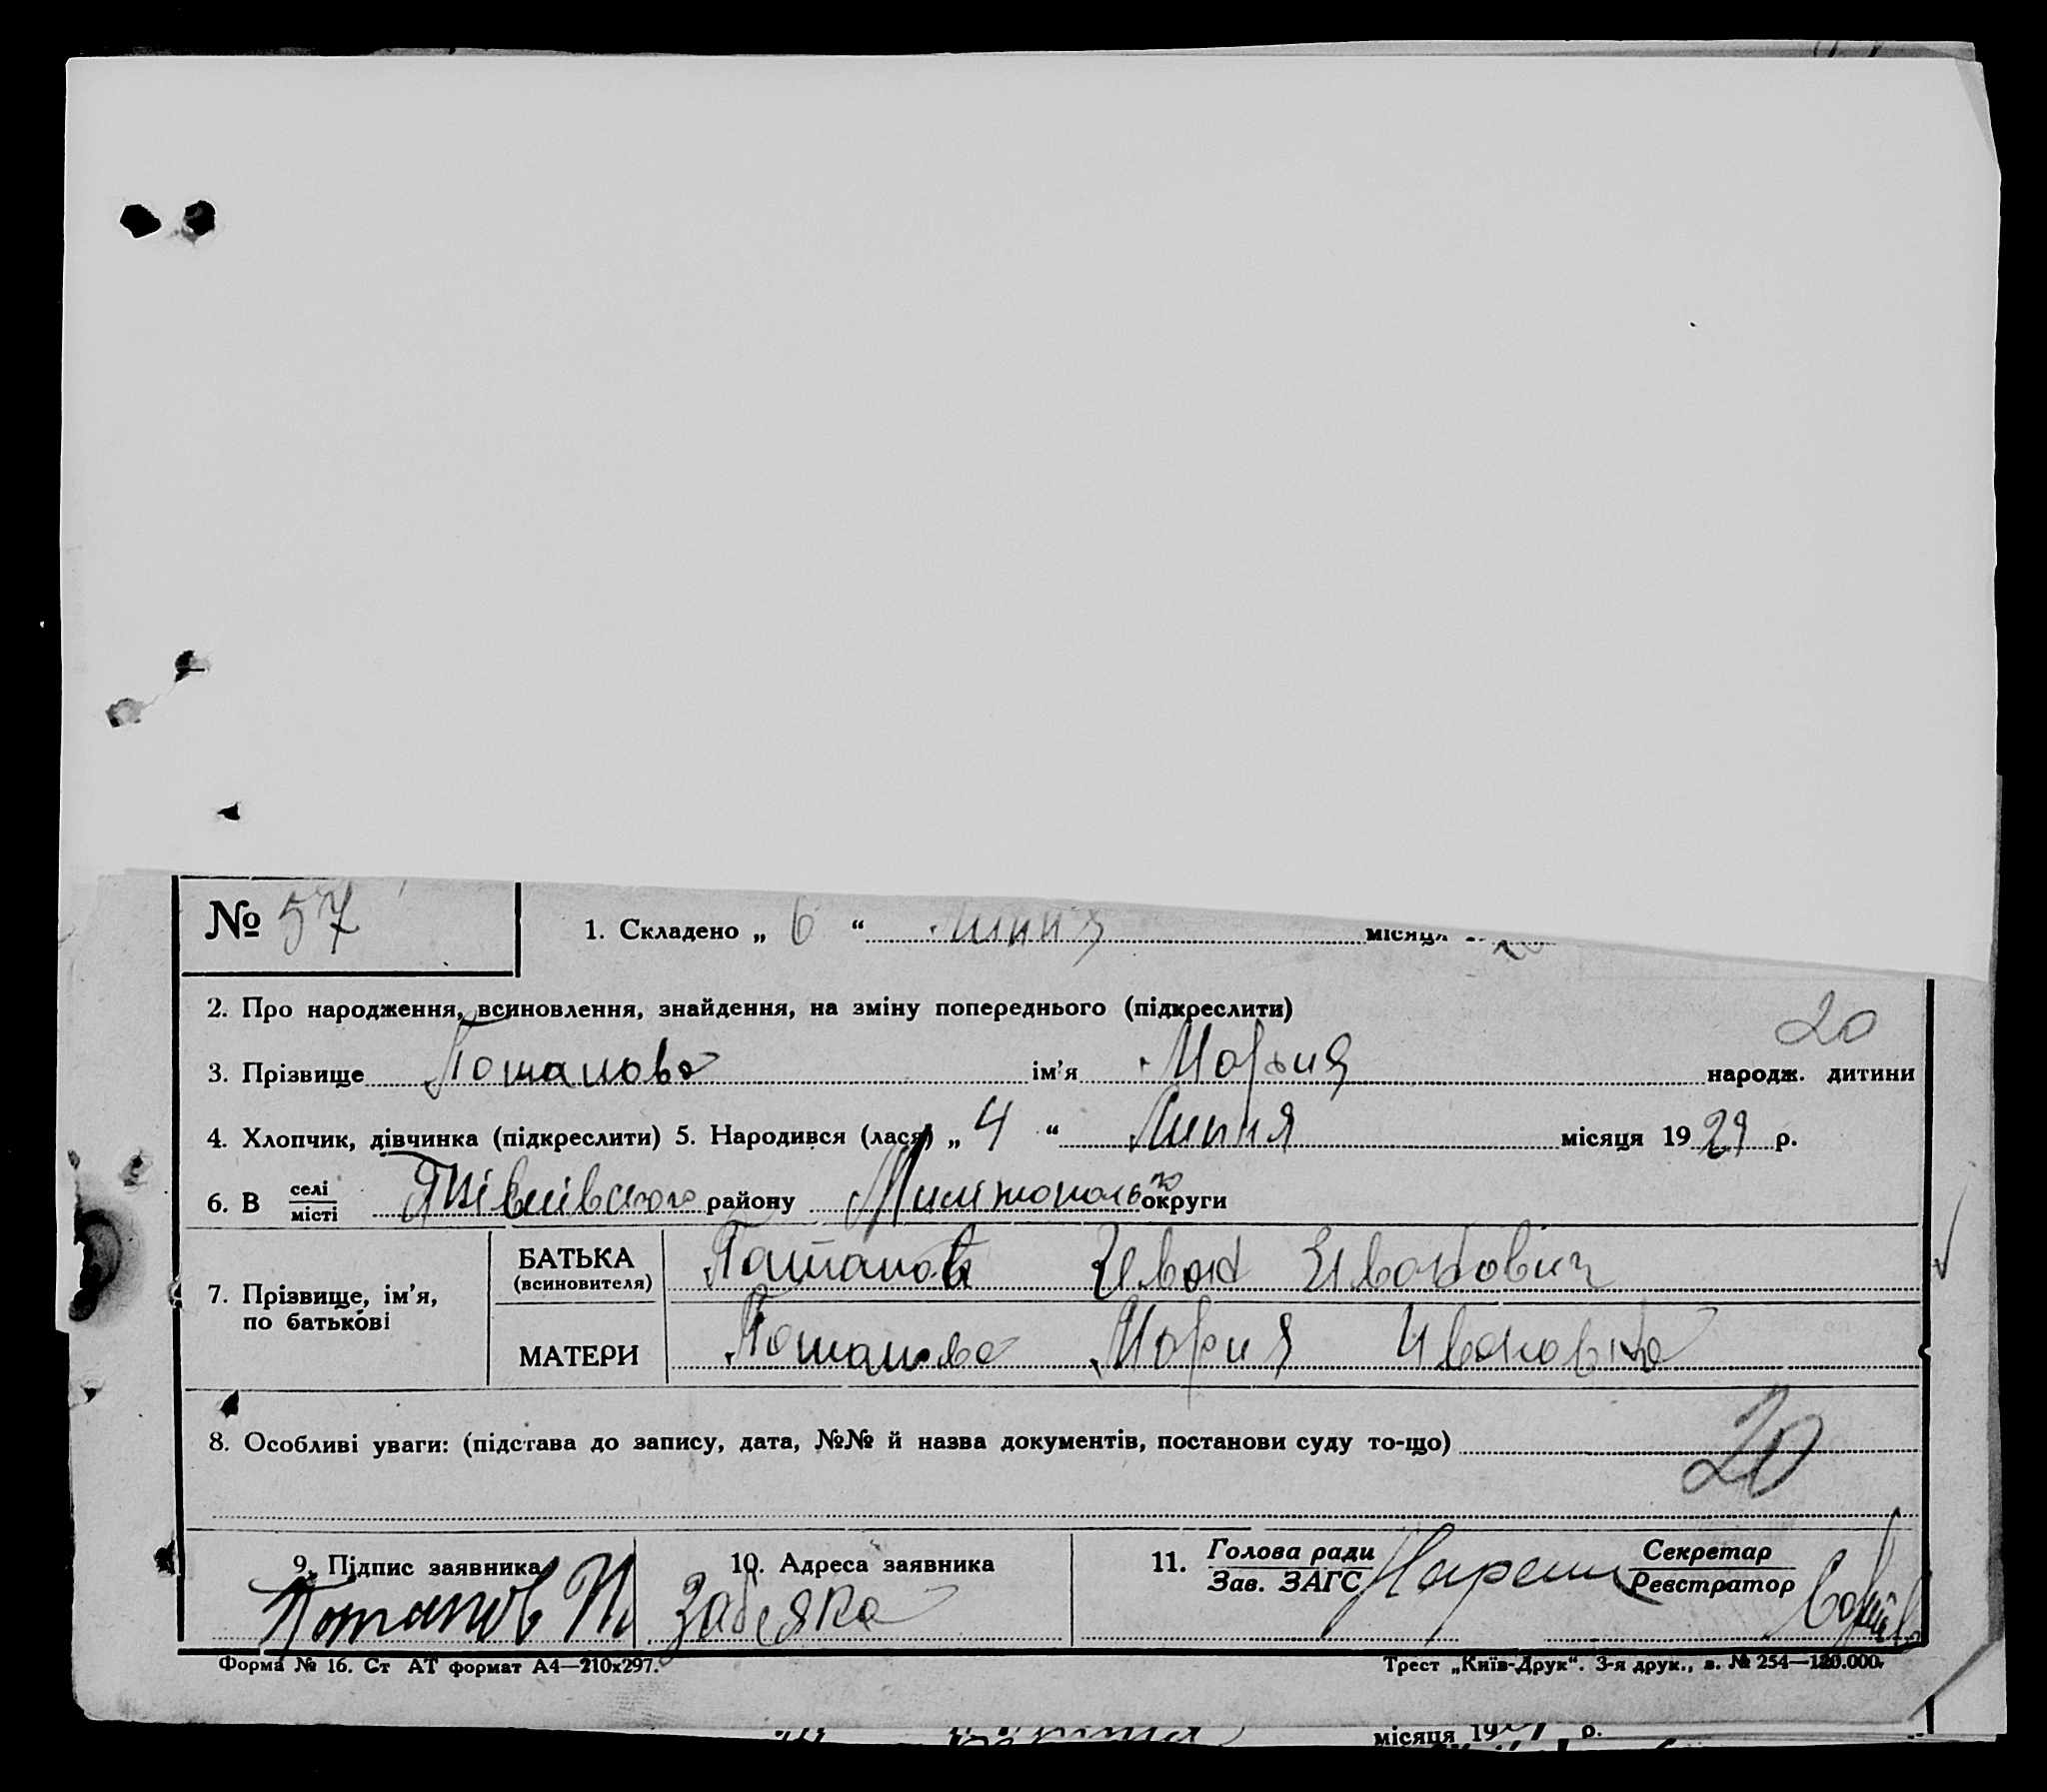 № 57
1. Складено „ 6 “ липня місяця
2. Про народження, всиновлення, знайдення, на зміну попереднього (підкреслити)
20
3. Прізвище Потапова ім'я Мария народж. дитини
4. Хлопчик, дівчинка (підкреслити) 5. Народився (лася) „ 4 “ Липня місяця 1929 р.
6. В селі місті району округи
7. Прізвище, ім'я, по батькові
БАТЬКА (всиновителя) Потапов Иван Иванович
МАТЕРИ Потапова Мария Ивановна
8. Особливі уваги: (підстава до запису, дата, №№ й назва документів, постанови суду то-що)
20
9. Підпис заявника 10. Адреса заявника 11. Голова ради Зав. ЗАГС Секретар Реєстратор
Потапов
Форма № 16. Ст АТ формат А4—210x297. Трест „Київ-Друк“. 3-я друк., з. № 254—120.000.
місяця 19 р.